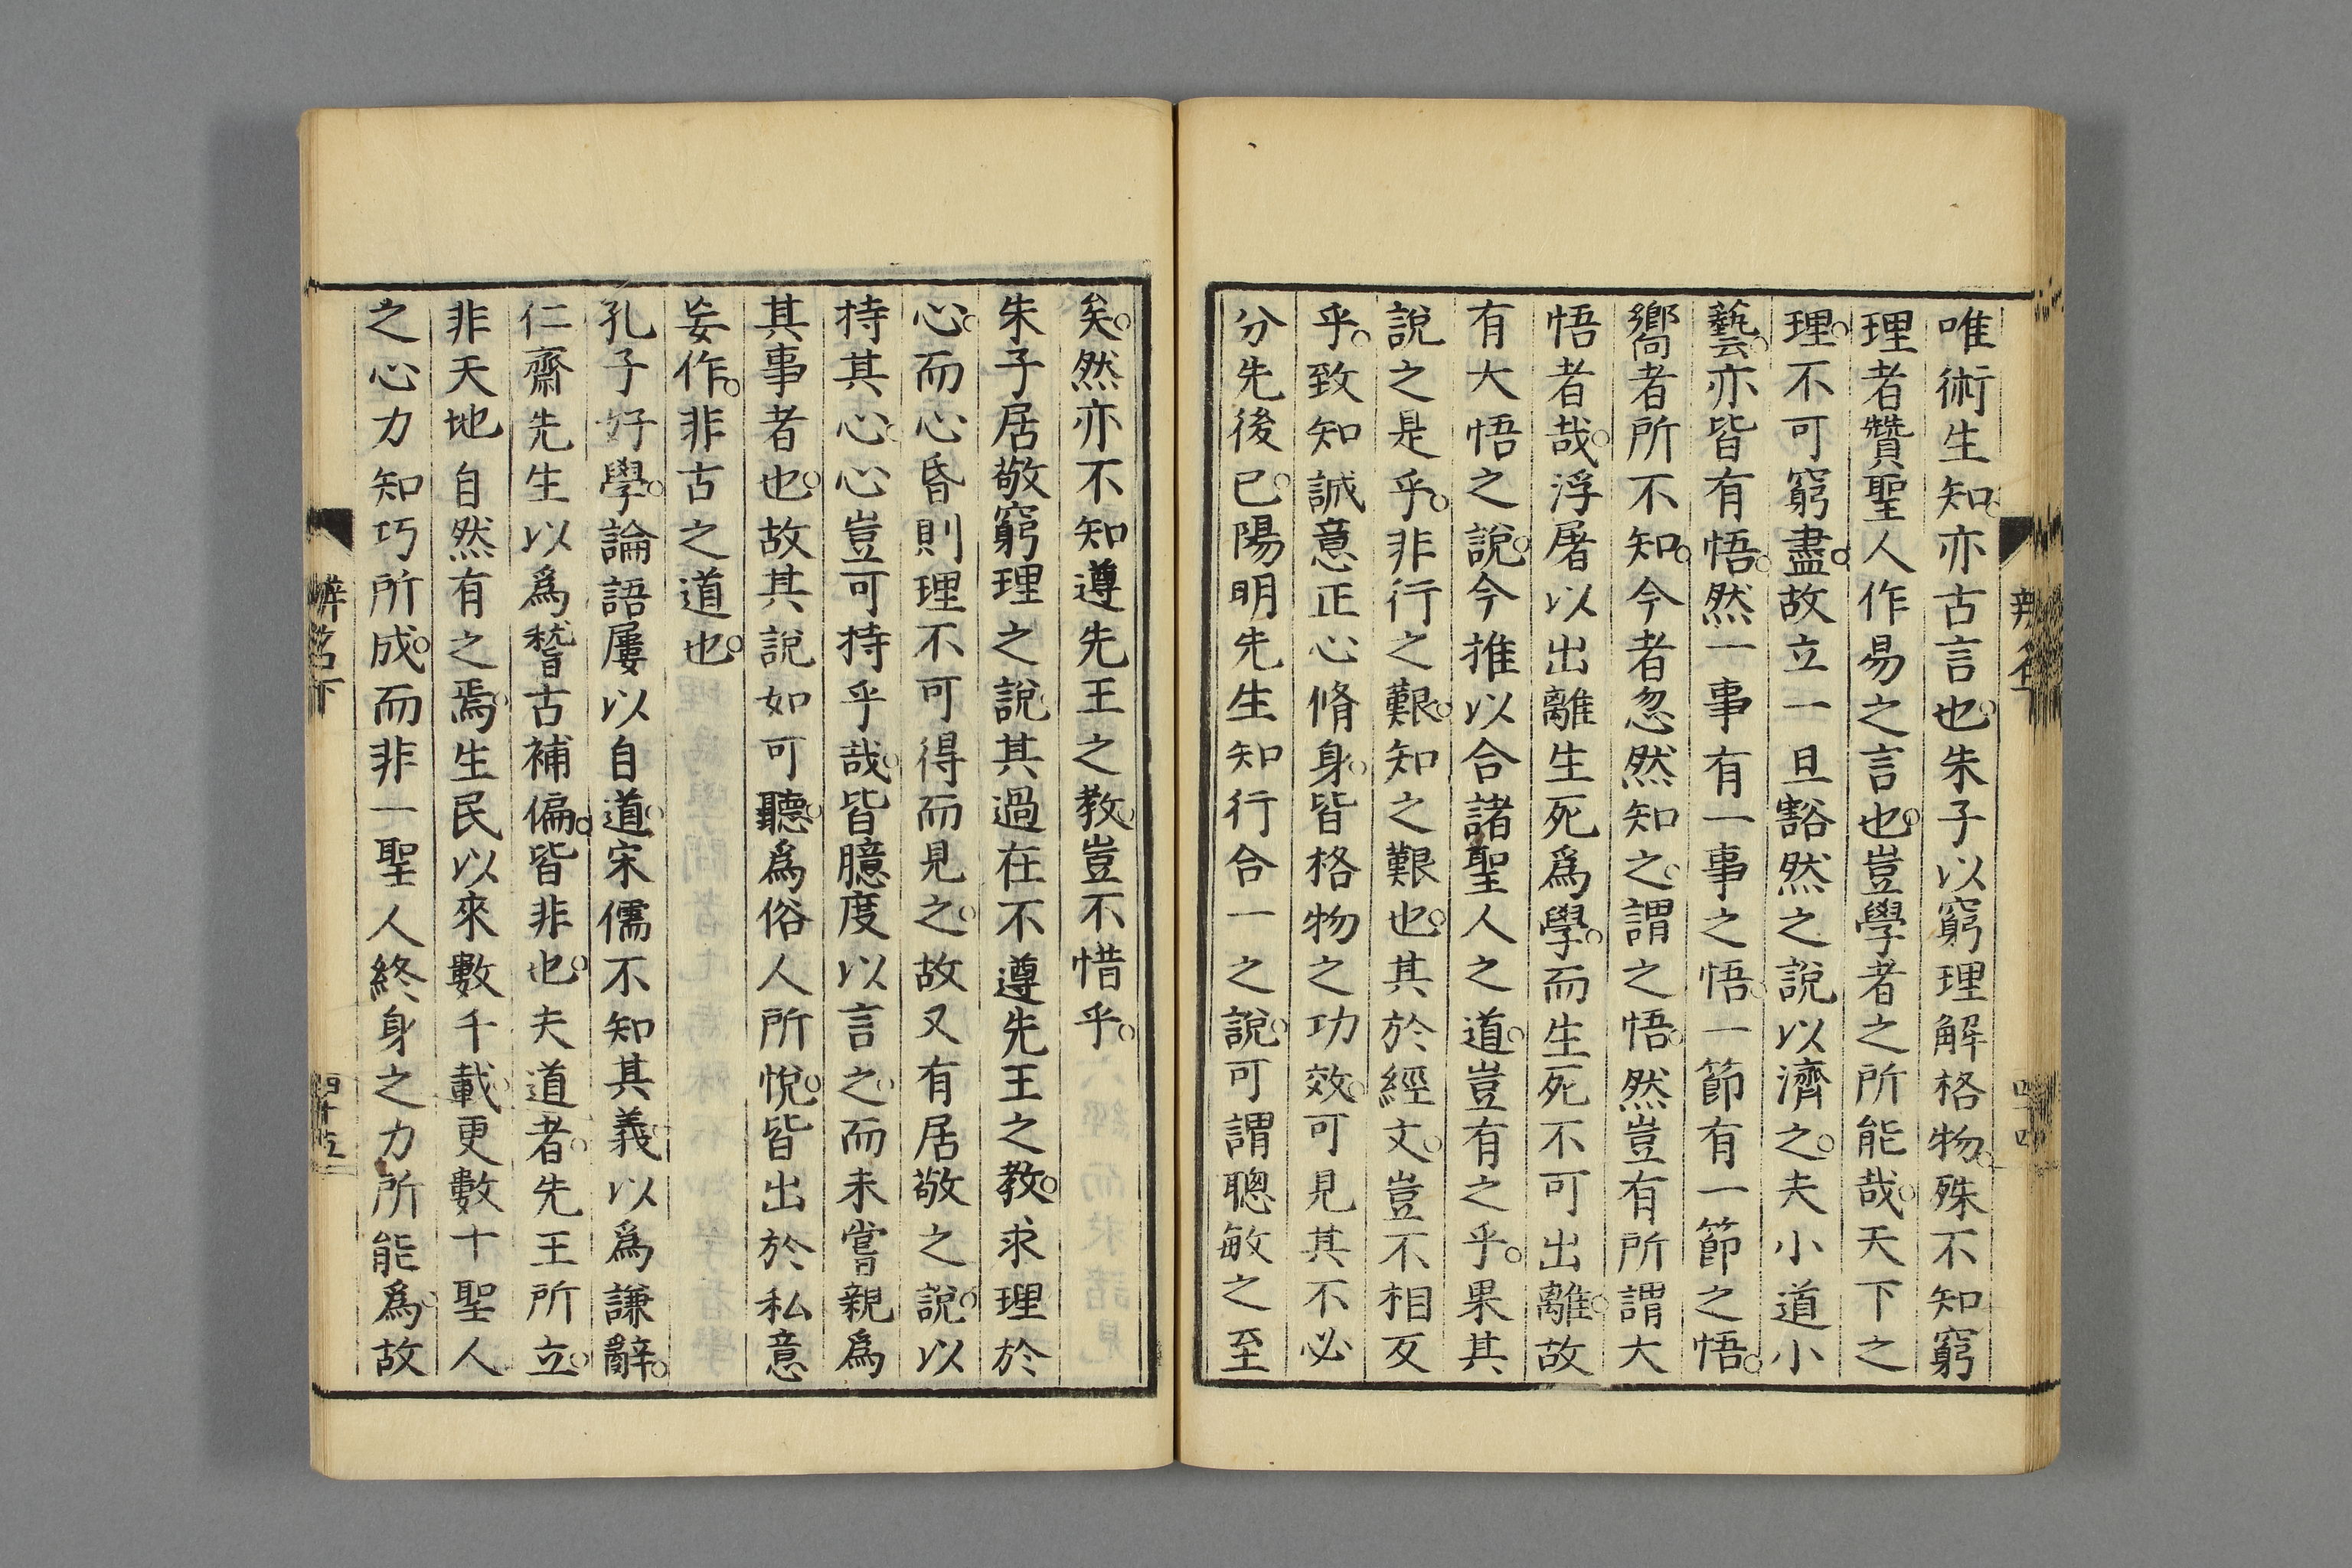 唯術生知。亦古言也。朱子以窮理解格物。殊不知窮
理者贊聖人作易之言也。豈學者之所能哉。天下之
理。不可窮盡。故立一旦豁然之說以濟之。夫小道小
藝。亦皆有悟。然一事有一事之悟。一節有一節之悟。
嚮者所不知。今者忽然知之。謂之悟。然豈有所謂大
悟者哉。浮屠以出離生死爲學。而生死不可出離。故
有大悟之說。今推以合諸聖人之道。豈有之乎。果其
說之是乎。非行之艱。知之艱也。其於經文。豈不相反
乎。致知誠意正心脩身。皆格物之功效。可見其不必
分先後已。陽明先生知行合一之說。可謂聰敏之至
矣。然亦不知遵先王之教。豈不惜乎。
朱子居敬窮理之說。其過在不遵先王之教。求理於
心。而心昏則理不可得而見之。故又有居敬之說。以
持其心。心豈可持乎哉。皆臆度以言之。而未嘗親爲
其事者也。故其說如可聽。爲俗人所悅。皆出於私意
妄作。非古之道也。
孔子好學。論語屢以自道。宋儒不知其義。以爲謙辭。
仁齋先生以爲稽古補偏。皆非也。夫道者。先王所立。
非天地自然有之焉。生民以來數千載。更數十聖人
之心力知巧所成。而非一聖人終身之力所能爲。故
辨名下
四十五